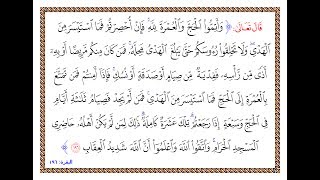 قال تعالى: ﴿ وَأَتِمُّوا۟ ٱلْحَجَّ وَٱلْعُمْرَةَ لِلَّهِ فَإِنْ أُحْصِرْتُمْ فَمَا ٱسْتَيْسَرَ مِنَ
ٱلْهَدْىِ وَلَا تَحْلِقُوا۟ رُءُوسَكُمْ حَتَّىٰ يَبْلُغَ ٱلْهَدْىُ مَحِلَّهُۥ فَمَن كَانَ مِنكُم مَّرِيضًا أَوْ بِهِۦٓ
أَذًى مِّن رَّأْسِهِۦ فَفِدْيَةٌ مِّن صِيَامٍ أَوْ صَدَقَةٍ أَوْ نُسُكٍ فَإِذَآ أَمِنتُمْ فَمَن تَمَتَّعَ
بِٱلْعُمْرَةِ إِلَى ٱلْحَجِّ فَمَا ٱسْتَيْسَرَ مِنَ ٱلْهَدْىِ فَمَن لَّمْ يَجِدْ فَصِيَامُ ثَلَٰثَةِ أَيَّامٍ
فِى ٱلْحَجِّ وَسَبْعَةٍ إِذَا رَجَعْتُمْ تِلْكَ عَشَرَةٌ كَامِلَةٌ ذَٰلِكَ لِمَن لَّمْ يَكُنْ أَهْلُهُۥ حَاضِرِى
ٱلْمَسْجِدِ ٱلْحَرَامِ وَٱتَّقُوا۟ ٱللَّهَ وَٱعْلَمُوٓا۟ أَنَّ ٱللَّهَ شَدِيدُ ٱلْعِقَابِ ﴾
البقرة: ١٩٦